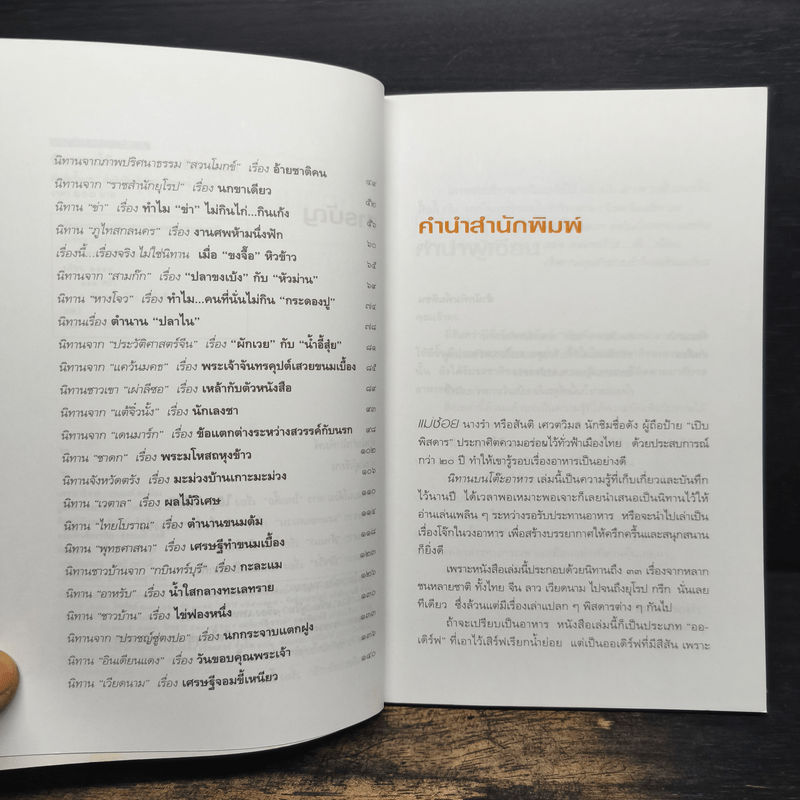 นิทานจากภาพปริศนาธรรม “สวนโมกข์” เรื่อง อ้ายชาติคน ๔๙
นิทานจาก “ราชสำนักยุโรป” เรื่อง นกขาเดียว ๕๒
นิทาน “ข่า” เรื่อง ทำไม “ข่า” ไม่กินไก่...กินเก้ง ๕๖
นิทาน “ภูไทสกลนคร” เรื่อง งานศพห้ามนึ่งฟัก ๖๐
เรื่องนี้...เรื่องจริง ไม่ใช่นิทาน เมื่อ “ขงจื๊อ” หิวข้าว ๖๕
นิทานจาก “สามก๊ก” เรื่อง “ปลาขงเบ้ง” กับ “หัวม่าน” ๖๙
นิทาน “หางโจว” เรื่อง ทำไม...คนที่นั่นไม่กิน “กระดองปู” ๗๔
นิทานเรื่อง ตำนาน “ปลาไน” ๗๘
นิทานจาก “ประวัติศาสตร์จีน” เรื่อง “ผักเวย” กับ “น้ำอี้สุ่ย” ๘๑
นิทานจาก “แคว้นมคธ” เรื่อง พระเจ้าจันทรคุปต์เสวยขนมเบื้อง ๘๕
นิทานชาวเขา “เผ่าลีซอ” เรื่อง เหล้ากับตัวหนังสือ ๘๙
นิทานจาก “แต้จิ๋วนั้ง” เรื่อง นักเลงชา ๙๓
นิทานจาก “เดนมาร์ก” เรื่อง ข้อแตกต่างระหว่างสวรรค์กับนรก ๙๘
นิทาน “ชาดก” เรื่อง พระมโหสถหุงข้าว ๑๐๒
นิทานจังหวัดตรัง เรื่อง มะม่วงบ้านเกาะมะม่วง ๑๐๖
นิทาน “เวตาล” เรื่อง ผลไม้วิเศษ ๑๑๐
นิทาน “ไทยโบราณ” เรื่อง ตำนานขนมต้ม ๑๑๔
นิทาน “พุทธศาสนา” เรื่อง เศรษฐีทำขนมเบื้อง ๑๑๘
นิทานชาวบ้านจาก “กบินทร์บุรี” เรื่อง กะละแม ๑๒๓
นิทาน “อาหรับ” เรื่อง น้ำใสกลางทะเลทราย ๑๒๖
นิทาน “ชาวบ้าน” เรื่อง ไข่ฟองหนึ่ง ๑๓๐
นิทานจาก “ปราชญ์ซู่ตงปอ” เรื่อง นกกระจาบแตกฝูง ๑๓๒
นิทาน “อินเดียนแดง” เรื่อง วันขอบคุณพระเจ้า ๑๓๖
นิทาน “เวียดนาม” เรื่อง เศรษฐีจอมขี้เหนียว ๑๔๐
คำนำสำนักพิมพ์
แม่ช้อย นางรำ หรือสันติ เศวตวิมล นักชิมชื่อดัง ผู้ถือป้าย “เปิบ
พิสดาร” ประกาศิตความอร่อยไว้ทั่วฟ้าเมืองไทย ด้วยประสบการณ์
กว่า ๒๐ ปี ทำให้เขารู้รอบเรื่องอาหารเป็นอย่างดี
นิทานบนโต๊ะอาหาร เล่มนี้เป็นความรู้ที่เก็บเกี่ยวและบันทึก
ไว้นานปี ได้เวลาพอเหมาะพอเจาะก็เลยนำเสนอเป็นนิทานไว้ให้
อ่านเล่นเพลิน ๆ ระหว่างรอรับประทานอาหาร หรือจะนำไปเล่าเป็น
เรื่องโจ๊กในวงอาหาร เพื่อสร้างบรรยากาศให้ครึกครื้นและสนุกสนาน
ก็ยิ่งดี
เพราะหนังสือเล่มนี้ประกอบด้วยนิทานถึง ๓๓ เรื่องจากหลาก
ชนหลายชาติ ทั้งไทย จีน ลาว เวียดนาม ไปจนถึงยุโรป กรีก นั่นเลย
ทีเดียว ซึ่งล้วนแต่มีเรื่องเล่าแปลก ๆ พิสดารต่าง ๆ กันไป
ถ้าจะเปรียบเป็นอาหาร หนังสือเล่มนี้ก็เป็นประเภท “ออ-
เดิร์ฟ” ที่เอาไว้เสิร์ฟเรียกน้ำย่อย แต่เป็นออเดิร์ฟที่มีสีสัน เพราะ